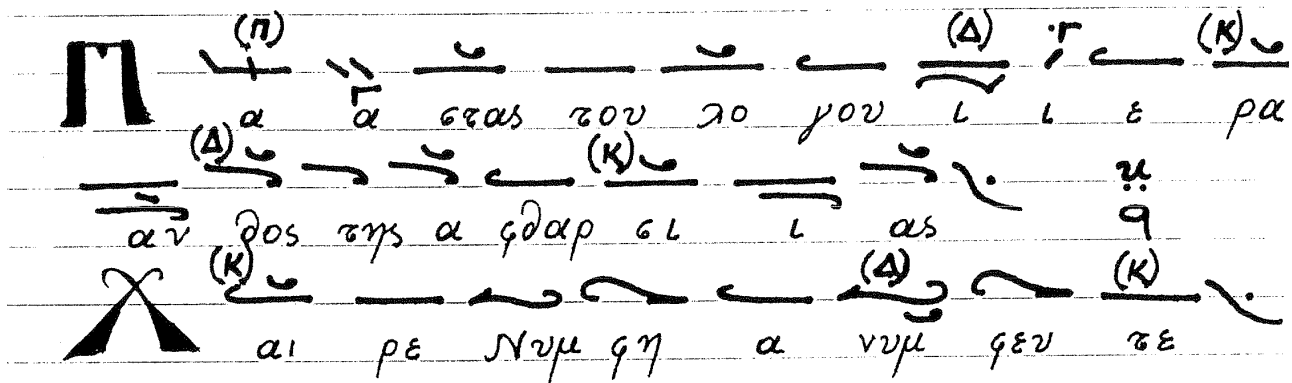 (Π) (Δ) (Κ)
Π α α στας του λο γου ι ι ε ρα
(Δ) (Κ)
αν θος της α φθαρ σι ι ας
(Κ) (Δ) (Κ)
Χ αι ρε Νυμ φη α νυμ φευ τε